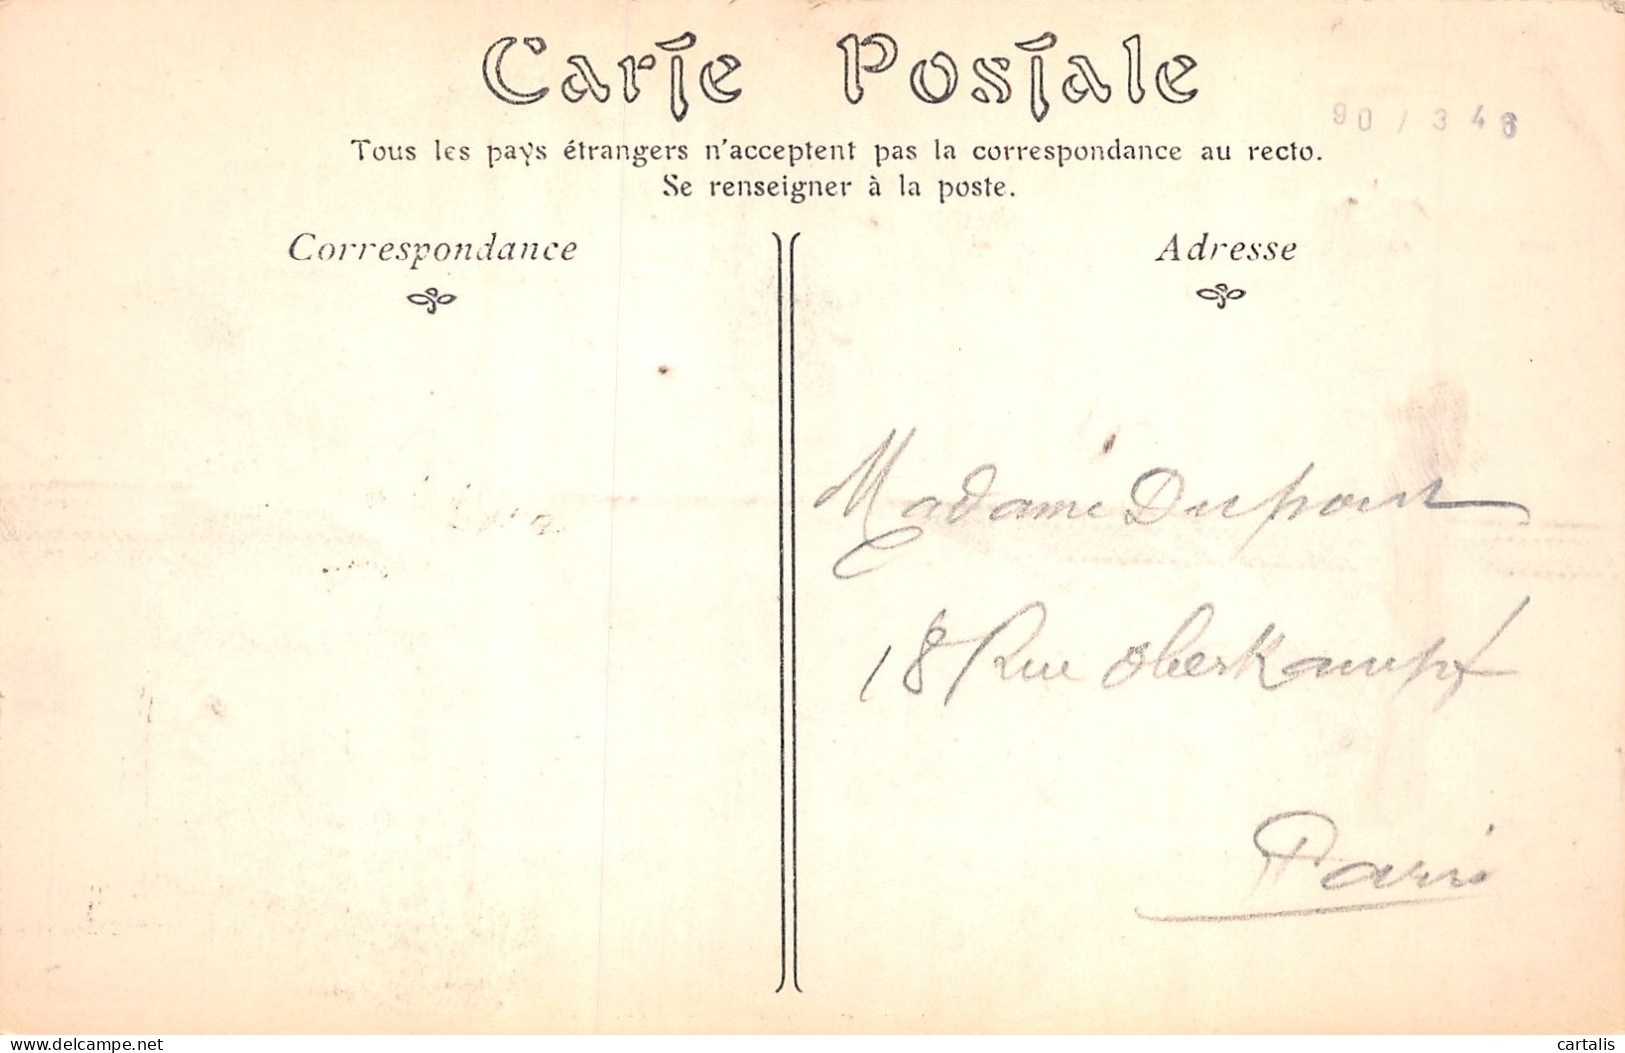 Carte Postale
90 / 346
Tous les pays étrangers n'acceptent pas la correspondance au recto.
Se renseigner à la poste.
Correspondance
Adresse
Madame Dupont
18 Rue Oberkampf
Paris
delcampe.net
cartalis